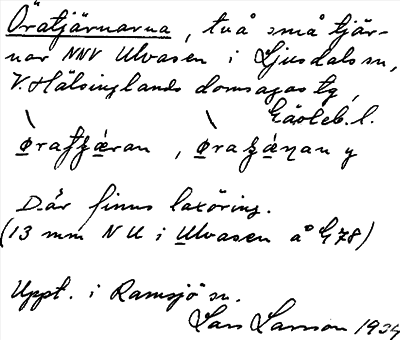 Öratjärnarna, två små tjär-
nar NNV Ulvasen i Ljusdals sn,
V. Hälsinglands domsagas tg,
Gävleb. l.
Där finns laxöring.
(13 mm N U i Ulvasen å G78)
Uppt. i Ramsjö sn.
Lars Larsson 1934